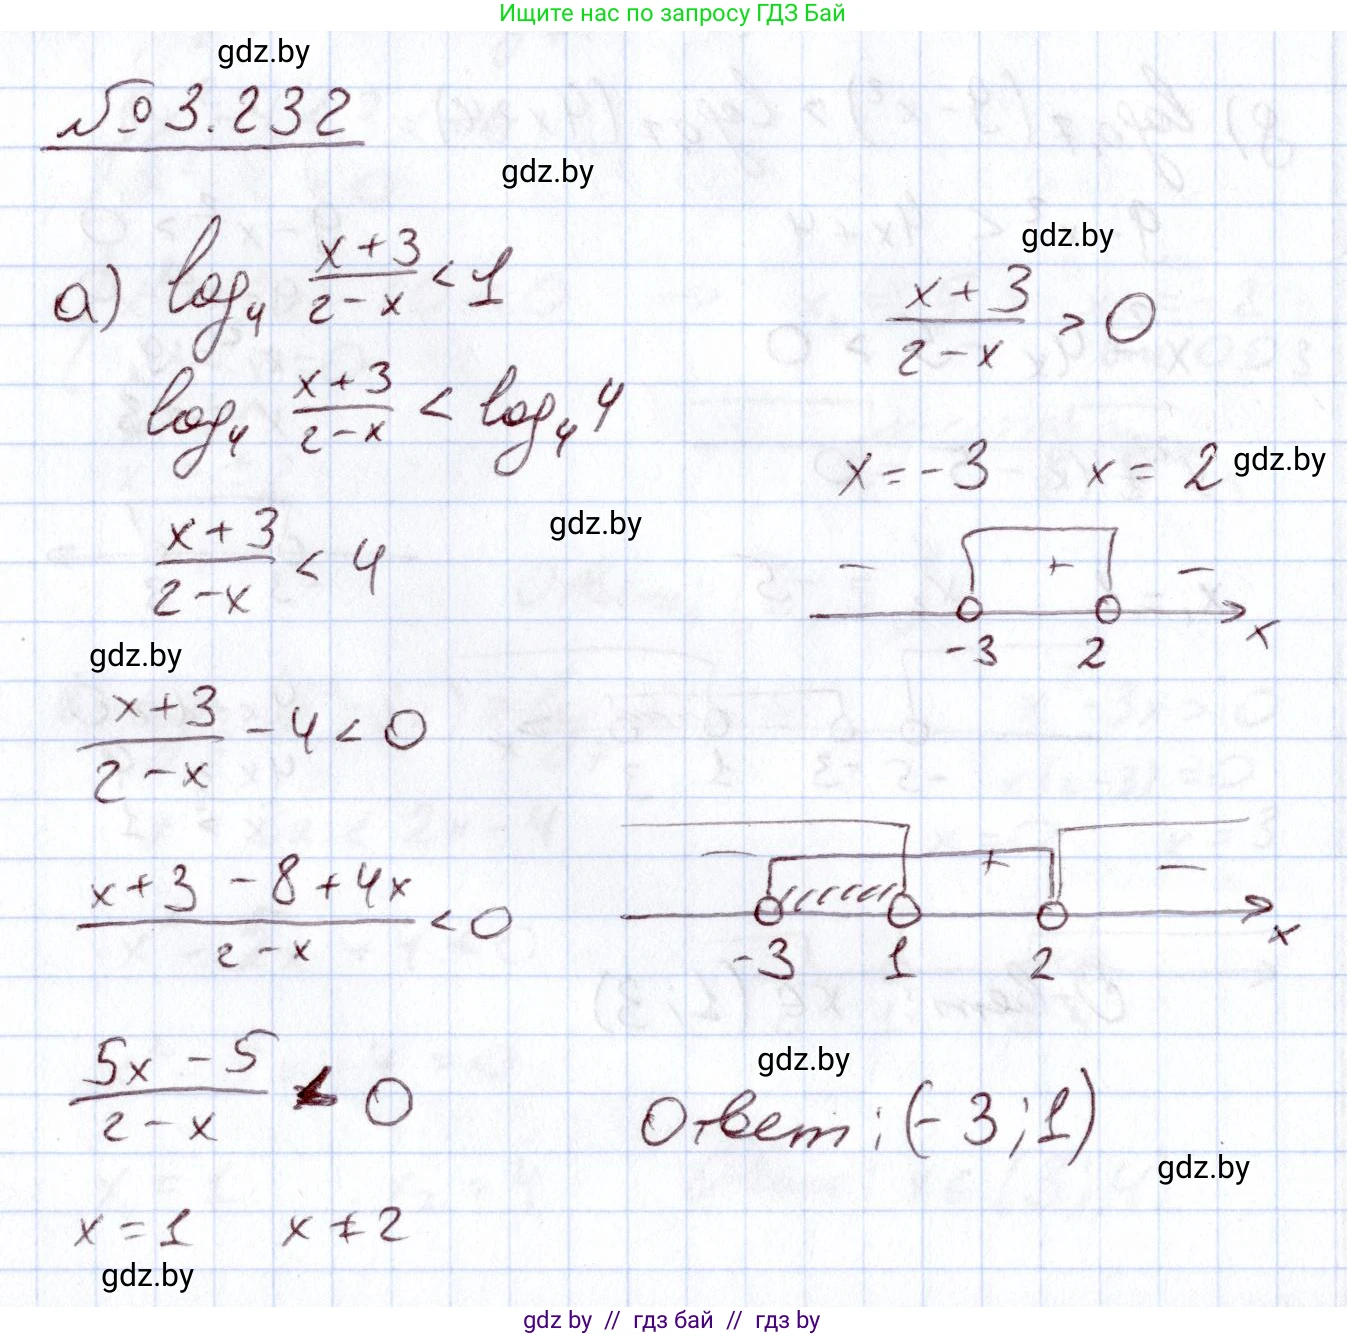 Ищите нас по запросу ГДЗ Бай
gdz.by
№ 3.232
gdz.by
а) log₄ (x+3)/(2-x) < 1
log₄ (x+3)/(2-x) < log₄ 4
gdz.by
(x+3)/(2-x) < 4
gdz.by
(x+3)/(2-x) - 4 < 0
(x+3-8+4x)/(2-x) < 0
(5x-5)/(2-x) < 0
x = 1 x ≠ 2
gdz.by
gdz.by
(x+3)/(2-x) > 0
x = -3 x = 2
gdz.by
- + -
-3 2 x
- + -
-3 1 2 x
gdz.by
Ответ: (-3; 1)
gdz.by
gdz by // гдз бай // гдз by